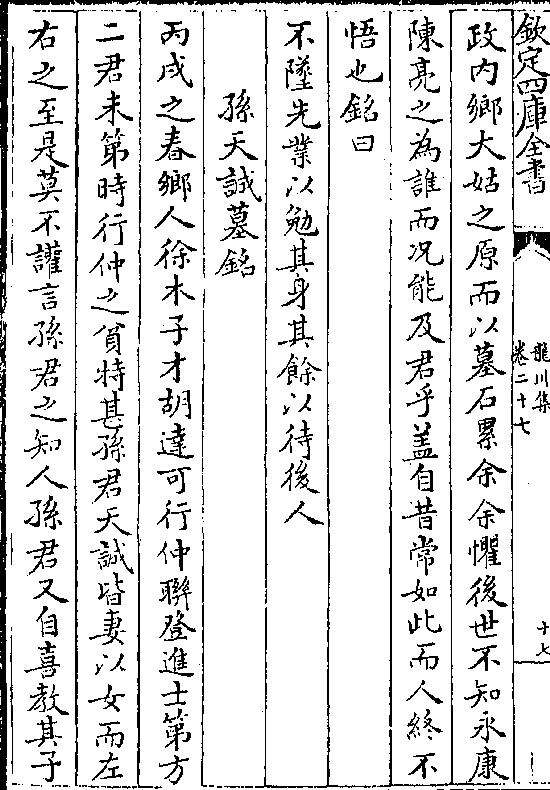 欽定四庫全書
龍川集
卷二十七
十七
政内鄉大姑之原而以墓石累余余懼後世不知永康
陳亮之為誰而况能及君乎葢自昔常如此而人終不
悟也銘曰
不墜先業以勉其身其餘以待後人
孫天誠墓銘
丙戌之春鄉人徐木子才胡達可行仲聯登進士第方
二君未第時行仲之貧特甚孫君天誠皆妻以女而左
右之至是莫不讙言孫君之知人孫君又自喜教其子